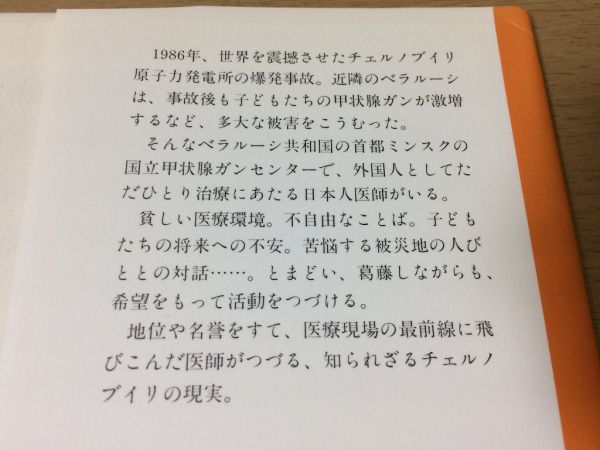 1986年、世界を震撼させたチェルノブイリ
原子力発電所の爆発事故。近隣のベラルーシ
は、事故後も子どもたちの甲状腺ガンが激増
するなど、多大な被害をこうむった。
そんなベラルーシ共和国の首都ミンスクの
国立甲状腺ガンセンターで、外国人としてた
だひとり治療にあたる日本人医師がいる。
貧しい医療環境。不自由なことば。子ども
たちの将来への不安。苦悩する被災地の人び
ととの対話……。とまどい、葛藤しながらも、
希望をもって活動をつづける。
地位や名誉をすて、医療現場の最前線に飛
びこんだ医師がつづる、知られざるチェルノ
ブイリの現実。